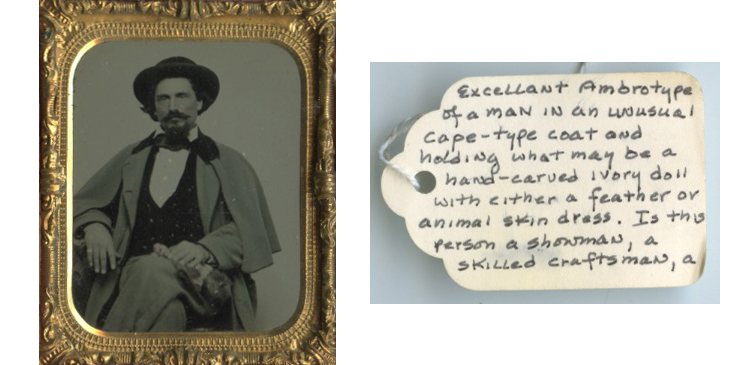 Excellant Ambrotype
of a man in an unusual
cape-type coat and
holding what may be a
hand-carved ivory doll
with either a feather or
animal skin dress. Is this
person a showman, a
skilled craftsman, a